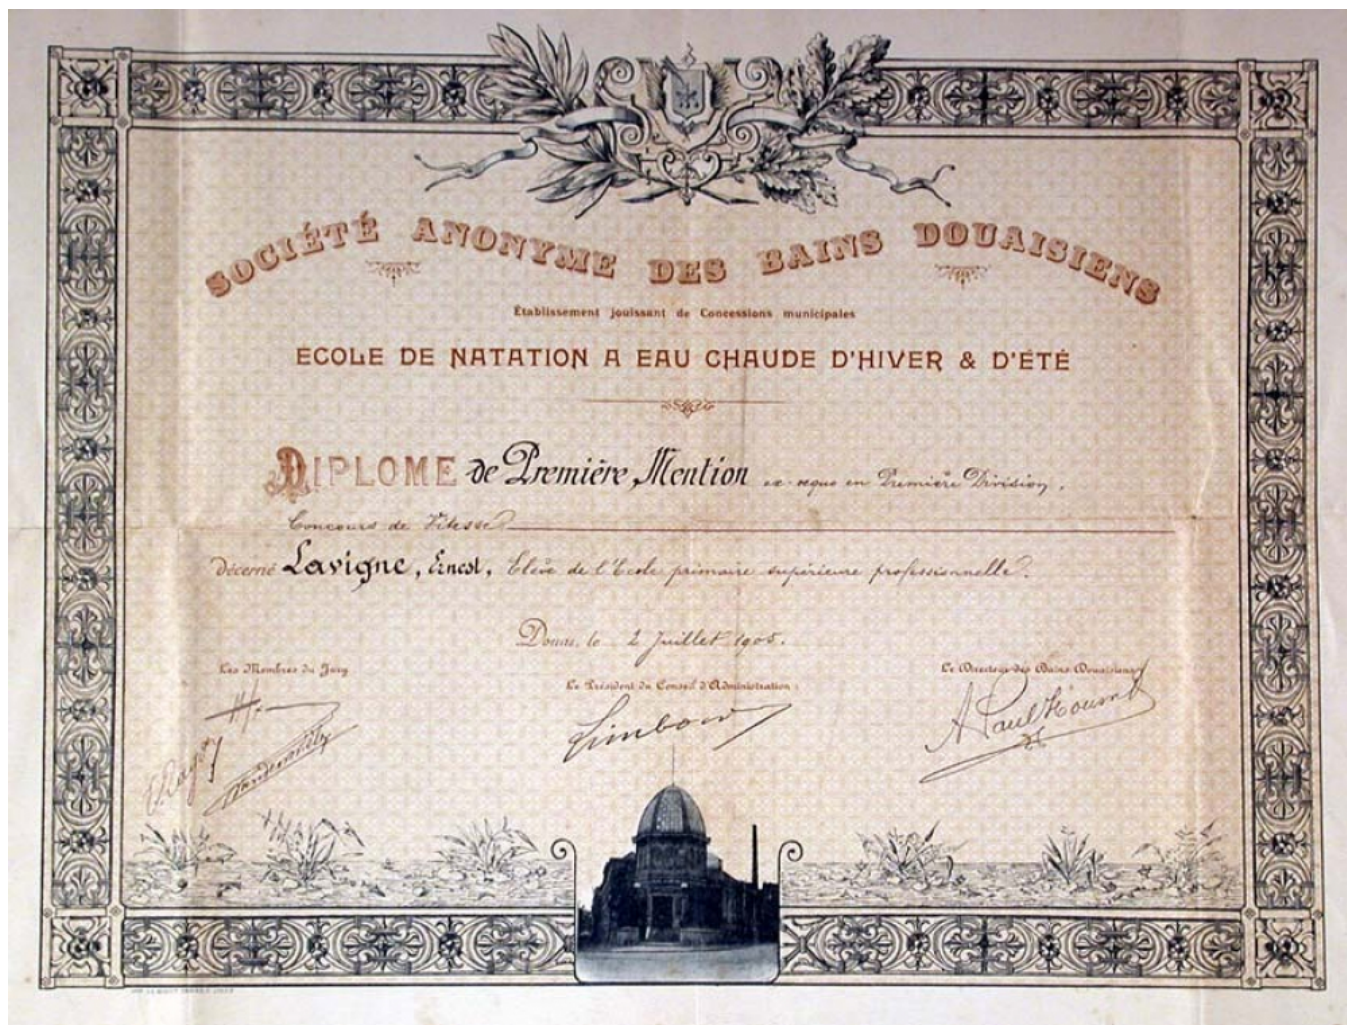 SOCIÉTÉ ANONYME DES BAINS DOUAISIENS
Établissement jouissant de Concessions municipales
ECOLE DE NATATION A EAU CHAUDE D'HIVER & D'ÉTÉ
DIPLOME de Première Mention ex-æquo en Première Division,
Concours de Vitesse
Décerné Lavigne, Ernest, Elève de l'Ecole primaire supérieure professionnelle.
Douai, le 2 Juillet 1905.
Les Membres du Jury
Le Président du Conseil d'Administration
Le Directeur des Bains Douaisiens